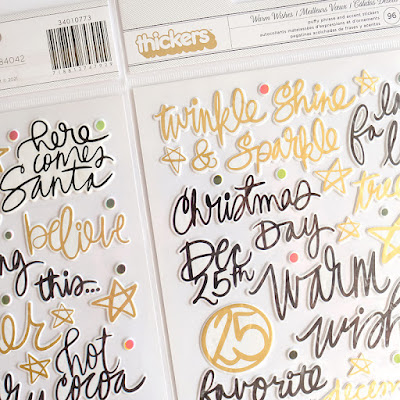 34010773
84042
thickers
Warm Wishes / Meilleurs Vœux /
puffy phrase and accent stickers
96
here
comes
Santa
believe
this...
hot
cocoa
twinkle Shine
& Sparkle
Christmas
Dec Day
25th
warm
25
favorite